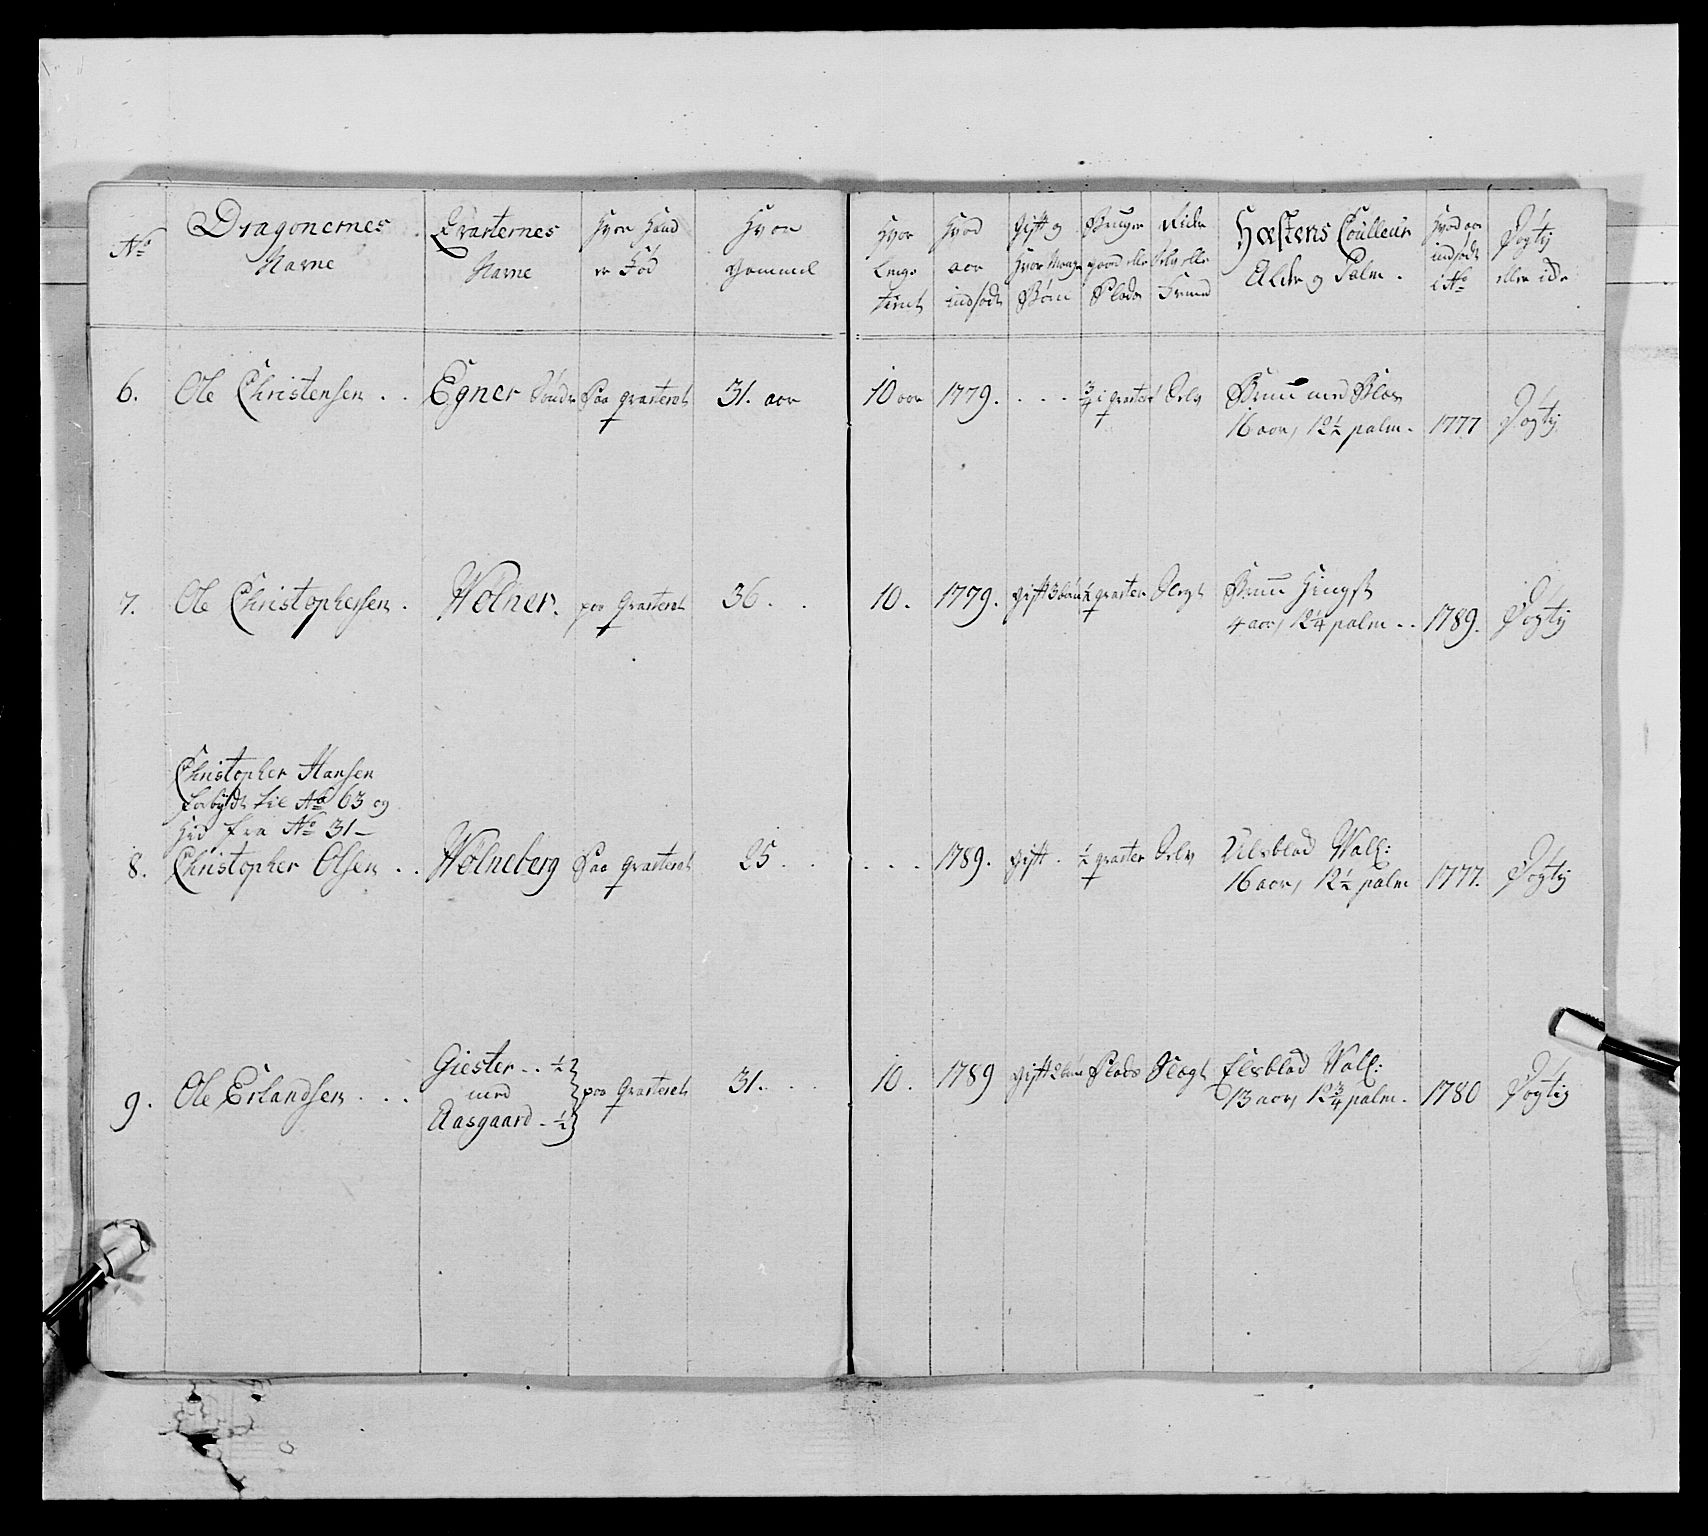 No
Dragonernes Navne
Qvarternes Navne
Hvor Hand er Fød
Hvor Gammel
Hvor Lenge tient
Hvad aar indsødt
Gift og Hvor Mange Børn
Bruger gaard eller Plads
Rider Selv eller Fremed
Hæstens Coulleur Alder og Palm.
Hvad aar indsødt i No
Døgtig eller icke
6. Ole Christensen . . Egner Søndre Paa Qvarteret 31. aar 10 aar 1779. . . . 3/4 i qvarteret Selv Bruun med Blæs 16 aar, 12 1/2 palm. 1777 Døgtig
7. Ole Christophersen . Wølner. paa Qvarteret 36. . 10. 1779. gift 3 børn 1/2 qvarter Slegt Bruun Hingst 4 aar, 12 1/4 palm . . 1789. Døgtig
Christopher Hansen
forbÿdt til No 63 og
Hid fra No 31 –
8. Christopher Olsen . . Wølneberg Paa Qvarteret 25 . . . . . 1789. gift . 1/2 qvarter Selv Ulsblad Wall: 16 aar, 12 1/2 palm 1777. Døgtig
9. Ole Erlandsen . . . Giester . . 1/2 med Aasgaard . 1/2 paa Qvarteret 31. . . 10. 1789 gift 2 børn Plads Slegt Elsblad Wall: 13 aar, 12 3/4 palm. 1780 Døgtig